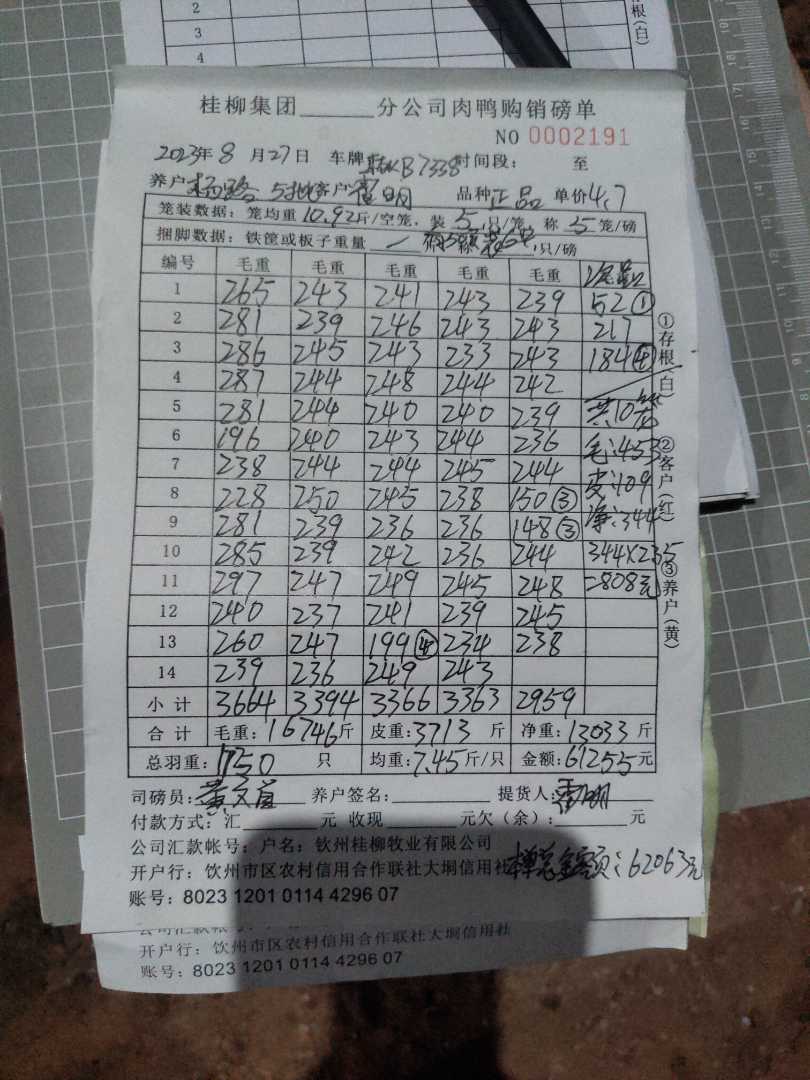 2
3
4
根(白)
桂柳集团______分公司肉鸭购销磅单
NO 0002191
2023年8月27日 车牌 B7338 时间段: 至
养户 杨 5批 客户 明 品种 正品 单价 4.7
笼装数据: 笼均重 10.92 斤/空笼, 装 5 只/笼, 称 5 笼/磅
捆脚数据: 铁筐或板子重量 ,只/磅
编号 毛重 毛重 毛重 毛重 毛重
1 265 243 241 243 239 52①
2 281 239 246 243 243 217
3 286 245 243 233 243 184④
4 287 244 248 244 242
5 281 244 240 240 239 共10笼
6 196 240 243 244 236 毛:453
7 238 244 244 245 244 皮:109
8 228 250 245 238 150③ 净:344
9 281 239 236 236 148③
10 285 239 242 236 244 344×2.35
11 297 247 249 245 248 =808元
12 240 237 241 239 245
13 260 247 199④ 234 238
14 239 236 249 243
小计 3664 3394 3366 3363 2959
合计 毛重: 16746斤 皮重: 3713斤 净重: 13033斤
总羽重: 1750 只 均重: 7.45斤/只 金额: 61255元
①存根(白) ②客户(红) ③养户(黄)
司磅员: 黄 养户签名: 提货人: 明
付款方式: 汇______元 收现______元欠(余):______元
公司汇款帐号: 户名: 钦州桂柳牧业有限公司
开户行: 钦州市区农村信用合作联社大垌信用社 单总金额: 62063元
账号: 8023 1201 0114 4296 07
公司汇款帐号:
开户行: 钦州市区农村信用合作联社大垌信用社
账号: 8023 1201 0114 4296 07